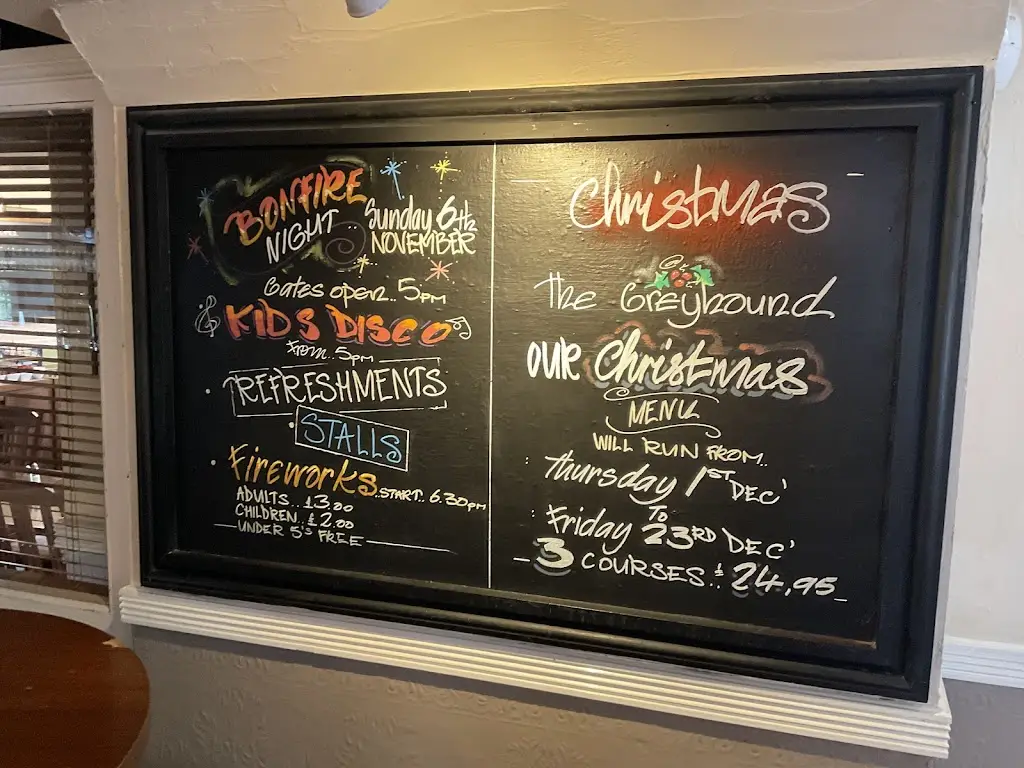 BONFIRE
NIGHT.. Sunday 6th
NOVEMBER
Gates open.. 5pm
KIDS DISCO
From.. 5pm
REFRESHMENTS
STALLS
Fireworks..START.. 6.30pm
ADULTS.. £3.00
CHILDREN. £2.00
UNDER 5's FREE
Christmas
The Greyhound
our Christmas
MENU
WILL RUN FROM..
Thursday 1ST DEC'
To
Friday 23RD DEC'
3 COURSES.. £24,95